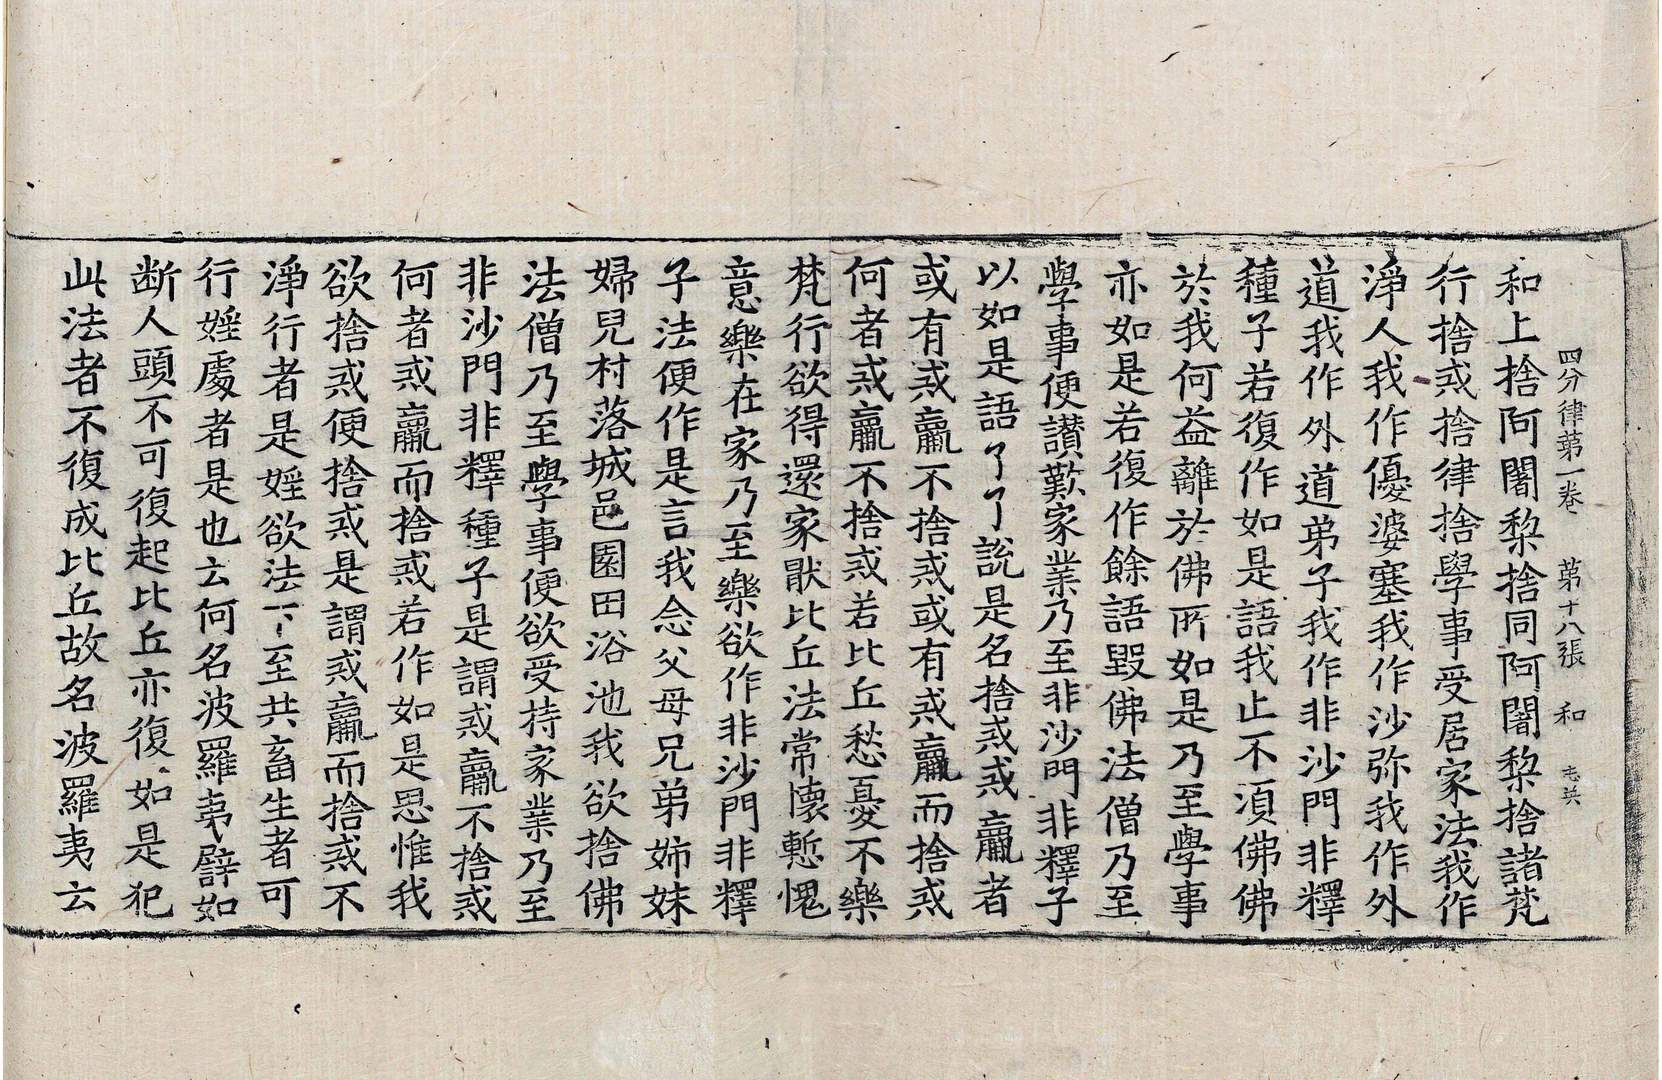 四分律第一卷 第十八張 和
和上捨阿闍梨捨同阿闍梨捨諸梵
行捨戒捨律捨學事受居家法我作
淨人我作優婆塞我作沙弥我作外
道我作外道弟子我作非沙門非釋
種子若復作如是語我止不湏佛佛
於我何益離於佛所如是乃至學事
亦如是若復作餘語毀佛法僧乃至
學事便讃歎家業乃至非沙門非釋子
以如是語了了說是名捨戒戒羸者
或有戒羸不捨戒或有戒羸而捨戒
何者戒羸不捨戒若比丘愁憂不樂
梵行欲得還家猒比丘法常懷慙愧
意樂在家乃至樂欲作非沙門非釋
子法便作是言我念父母兄弟姉妹
婦兒村落城邑園田浴池我欲捨佛
法僧乃至學事便欲受持家業乃至
非沙門非釋種子是謂戒羸不捨戒
何者戒羸而捨戒若作如是思惟我
欲捨戒便捨戒是謂戒羸而捨戒不
淨行者是婬欲法下至共畜生者可
行婬處者是也云何名波羅夷譬如
断人頭不可復起比丘亦復如是犯
此法者不復成比丘故名波羅夷云